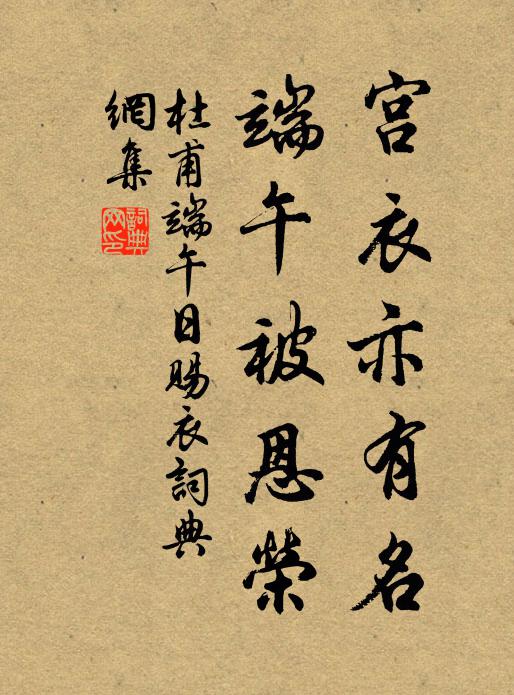 宫衣亦有名
端午被恩榮
杜甫端午日賜衣詞典
網集
詞典
网印